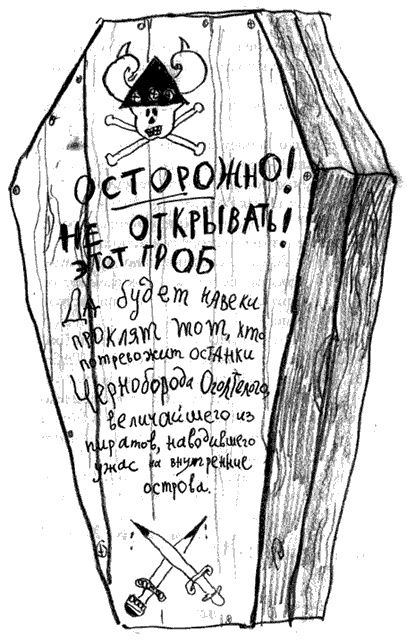 ОСТОРОЖНО!
НЕ ОТКРЫВАТЬ!
ЭТОТ ГРОБ
Да будет навеки
проклят тот, кто
потревожит останки
Черноборода Оголтелого,
величайшего из
пиратов, наводившего
ужас на внутренние
острова.